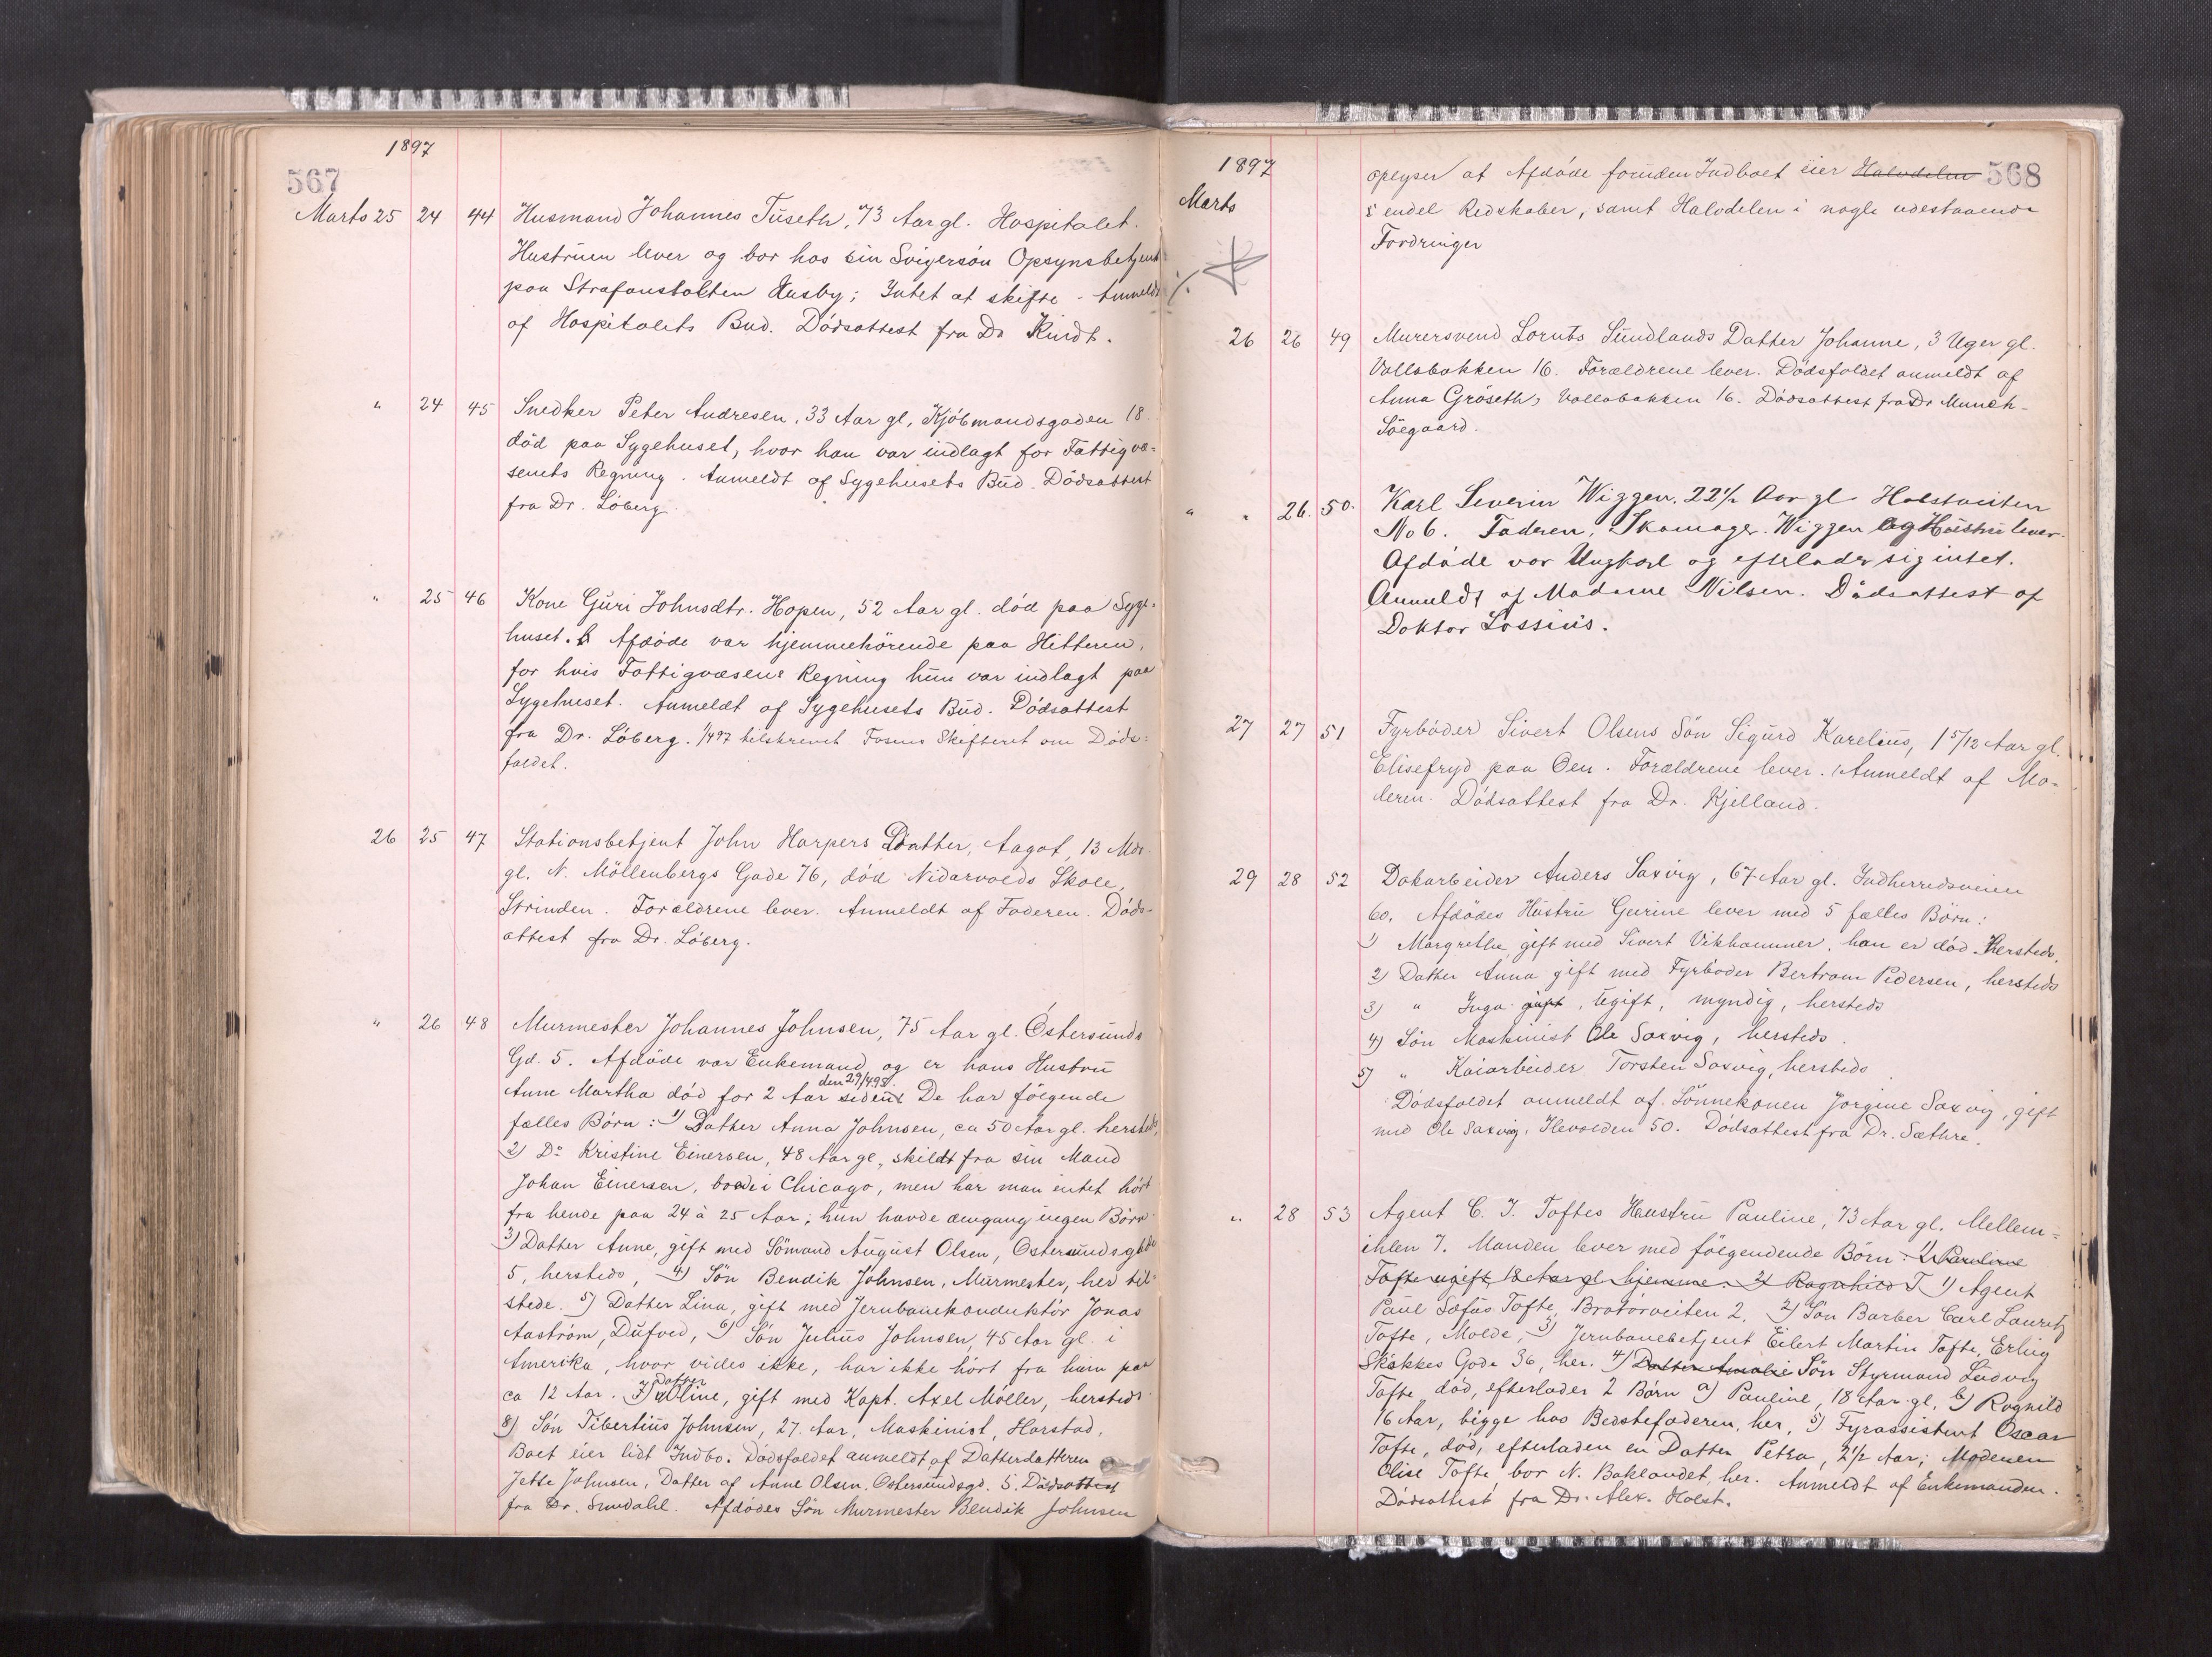 1897
567
Marts 25 24 44 Husmand Johannes Tuseth, 73 Aar gl. Hospitalet.
Hustruen lever og bor hos sin Svigersön Opsynsbetjent
paa Strafanstalten Husby; Intet at skifte - Anmeldt
af Hospitalets Bud. Dödsattest fra Dr Kindt.
" 24 45 Snedker Peter Andresen, 33 Aar gl, Kjöbmandsgaden 18.
död paa Sygehuset, hvor han var indlagt for Fattigvæ-
senets Regning. Anmeldt af Sygehusets Bud. Dödsattest
fra Dr. Löberg.
" 25 46 Kone Guri Johnsdtr. Hopen, 52 Aar gl. död paa Syge-
huset. Afdöde var hjemmehörende paa Hitteren,
for hvis Fattigvæsens Regning hun var indlagt paa
Sygehuset. Anmeldt af Sygehusets Bud. Dödsattest
fra Dr. Löberg. 1/4 97 tilskrevet Fosens Skifteret om Döds-
faldet.
26 25 47 Stationsbetjent John Harpers Datter, Aagot, 13 Mdr
gl. N. Möllenbergs Gade 76, död Nidarvolds Skole,
Strinden. Forældrene lever. Anmeldt af Faderen. Döds-
attest fra Dr. Löberg.
" 26 48 Murmester Johannes Johnsen, 75 Aar gl. Östersunds
Gd. 5. Afdöde var Enkemand og er hans Hustru
den 29/4 95.
Anne Martha död for 2 Aar siden. De har fölgende
fælles Börn: 1) Datter Anna Johnsen, ca 50 Aar gl. hersteds,
2) Do Kristine Einersen, 48 Aar gl., skildt fra sin Mand
Johan Einersen, boede i Chicago, men har man intet hört
fra hende paa 24 à 25 Aar; hun havde dengang ingen Börn.
3) Datter Anne, gift med Sömand August Olsen, Ostersundsgade
5, hersteds, 4) Sön Bendik Johnsen, Murmester, her til-
stede. 5) Datter Lina, gift med Jernbanekonduktör Jonas
Aaström, Dufved, 6) Sön Julius Johnsen, 45 Aar gl. i
Amerika, hvor vides ikke, har ikke hört fra ham paa
Datter
ca 12 Aar. 7) Oline, gift med Kapt. Axel Möller, hersteds.
8) Sön Tibertius Johnsen, 27 Aar, Maskinist, Harstad,
Boet eier lidt Indbo. Dödsfaldet anmeldt af Datterdatteren
Jette Johnsen, Datter af Anne Olsen, Ostersundsgd. 5. Dödsattest
fra Dr. Smedahl. Afdödes Sön Murmester Bendik Johnsen
1897
568
Marts oplyser at Afdöde foruden Indboet eier Halvdelen
i endel Redskaber, samt Halvdelen i nogle udestaaende
Fordringer
26 26 49 Murersvend Lornts Sundlands Datter Johanne, 3 Uger gl.
Vollabakken 16. Forældrene lever. Dödsfaldet anmeldt af
Anna Gröseth, Vollabakken 16. Dödsattest fra Dr Munch-
Söegaard.
" " 26. 50. Karl Severin Wiggen, 22 1/2 Aar gl. Holstveiten
No 6. Faderen, Skomager Wiggen og Hustru lever.
Afdöde var Ungkarl og efterlader sig intet.
Anmeldt af Madame Nilsen. Dödsattest af
Doktor Lossius.
27 27 51 Fyrböder Sivert Olsens Sön Sigurd Karelius, 1 5/12 Aar gl.
Elisefryd paa Öen. Forældrene lever. Anmeldt af Mo-
deren. Dödsattest fra Dr. Kjelland.
29 28 52 Dokarbeider Anders Saxvig, 67 Aar gl. Indherredsveien
60. Afdödes Hustru Gurine lever med 5 fælles Börn:
1) Margrethe gift med Sivert Vikhammer, han er död. Hersteds.
2) Datter Anna gift med Fyrböder Bertram Pedersen, hersteds
3) " Inga gift, Ugift, myndig, hersteds
4) Sön Maskinist Ole Saxvig, hersteds.
5) " Kaiarbeider Torsten Saxvig, hersteds.
Dödsfaldet anmeldt af Sönnekonen Jörgine Saxvig, gift
med Ole Saxvig, Ilevolden 50. Dödsattest fra Dr. Sæthre.
" 28 53 Agent C. J. Toftes Hustru Pauline, 73 Aar gl. Mellem-
ihlen 7. Manden lever med fölgendende Börn: 1) Pauline
Tofte ugift, 18 Aar gl. hjemme. 2) Ragnhild T 1) Agent
Paul Sofus Tofte, Bratörveiten 2. 2) Sön Barber Carl Lauritz
Tofte, Molde, 3) Jernbanebetjent Eilert Martin Tofte, Erling
Skakkes Gade 36, her. 4) Datter Amalie Sön Styrmand Ludvig
Tofte död, efterlader 2 Börn a) Pauline, 18 Aar gl. b) Ragnild
16 Aar, bigge hos Bedstefaderen, her, 5) Fyrassistent Oscar
Tofte, död, efterladen en Datter Petra, 2 1/2 Aar; Moderen
Olise Tofte bor N. Baklandet, her. Anmeldt af Enkemanden.
Dödsattest fra Dr. Alex. Holst.